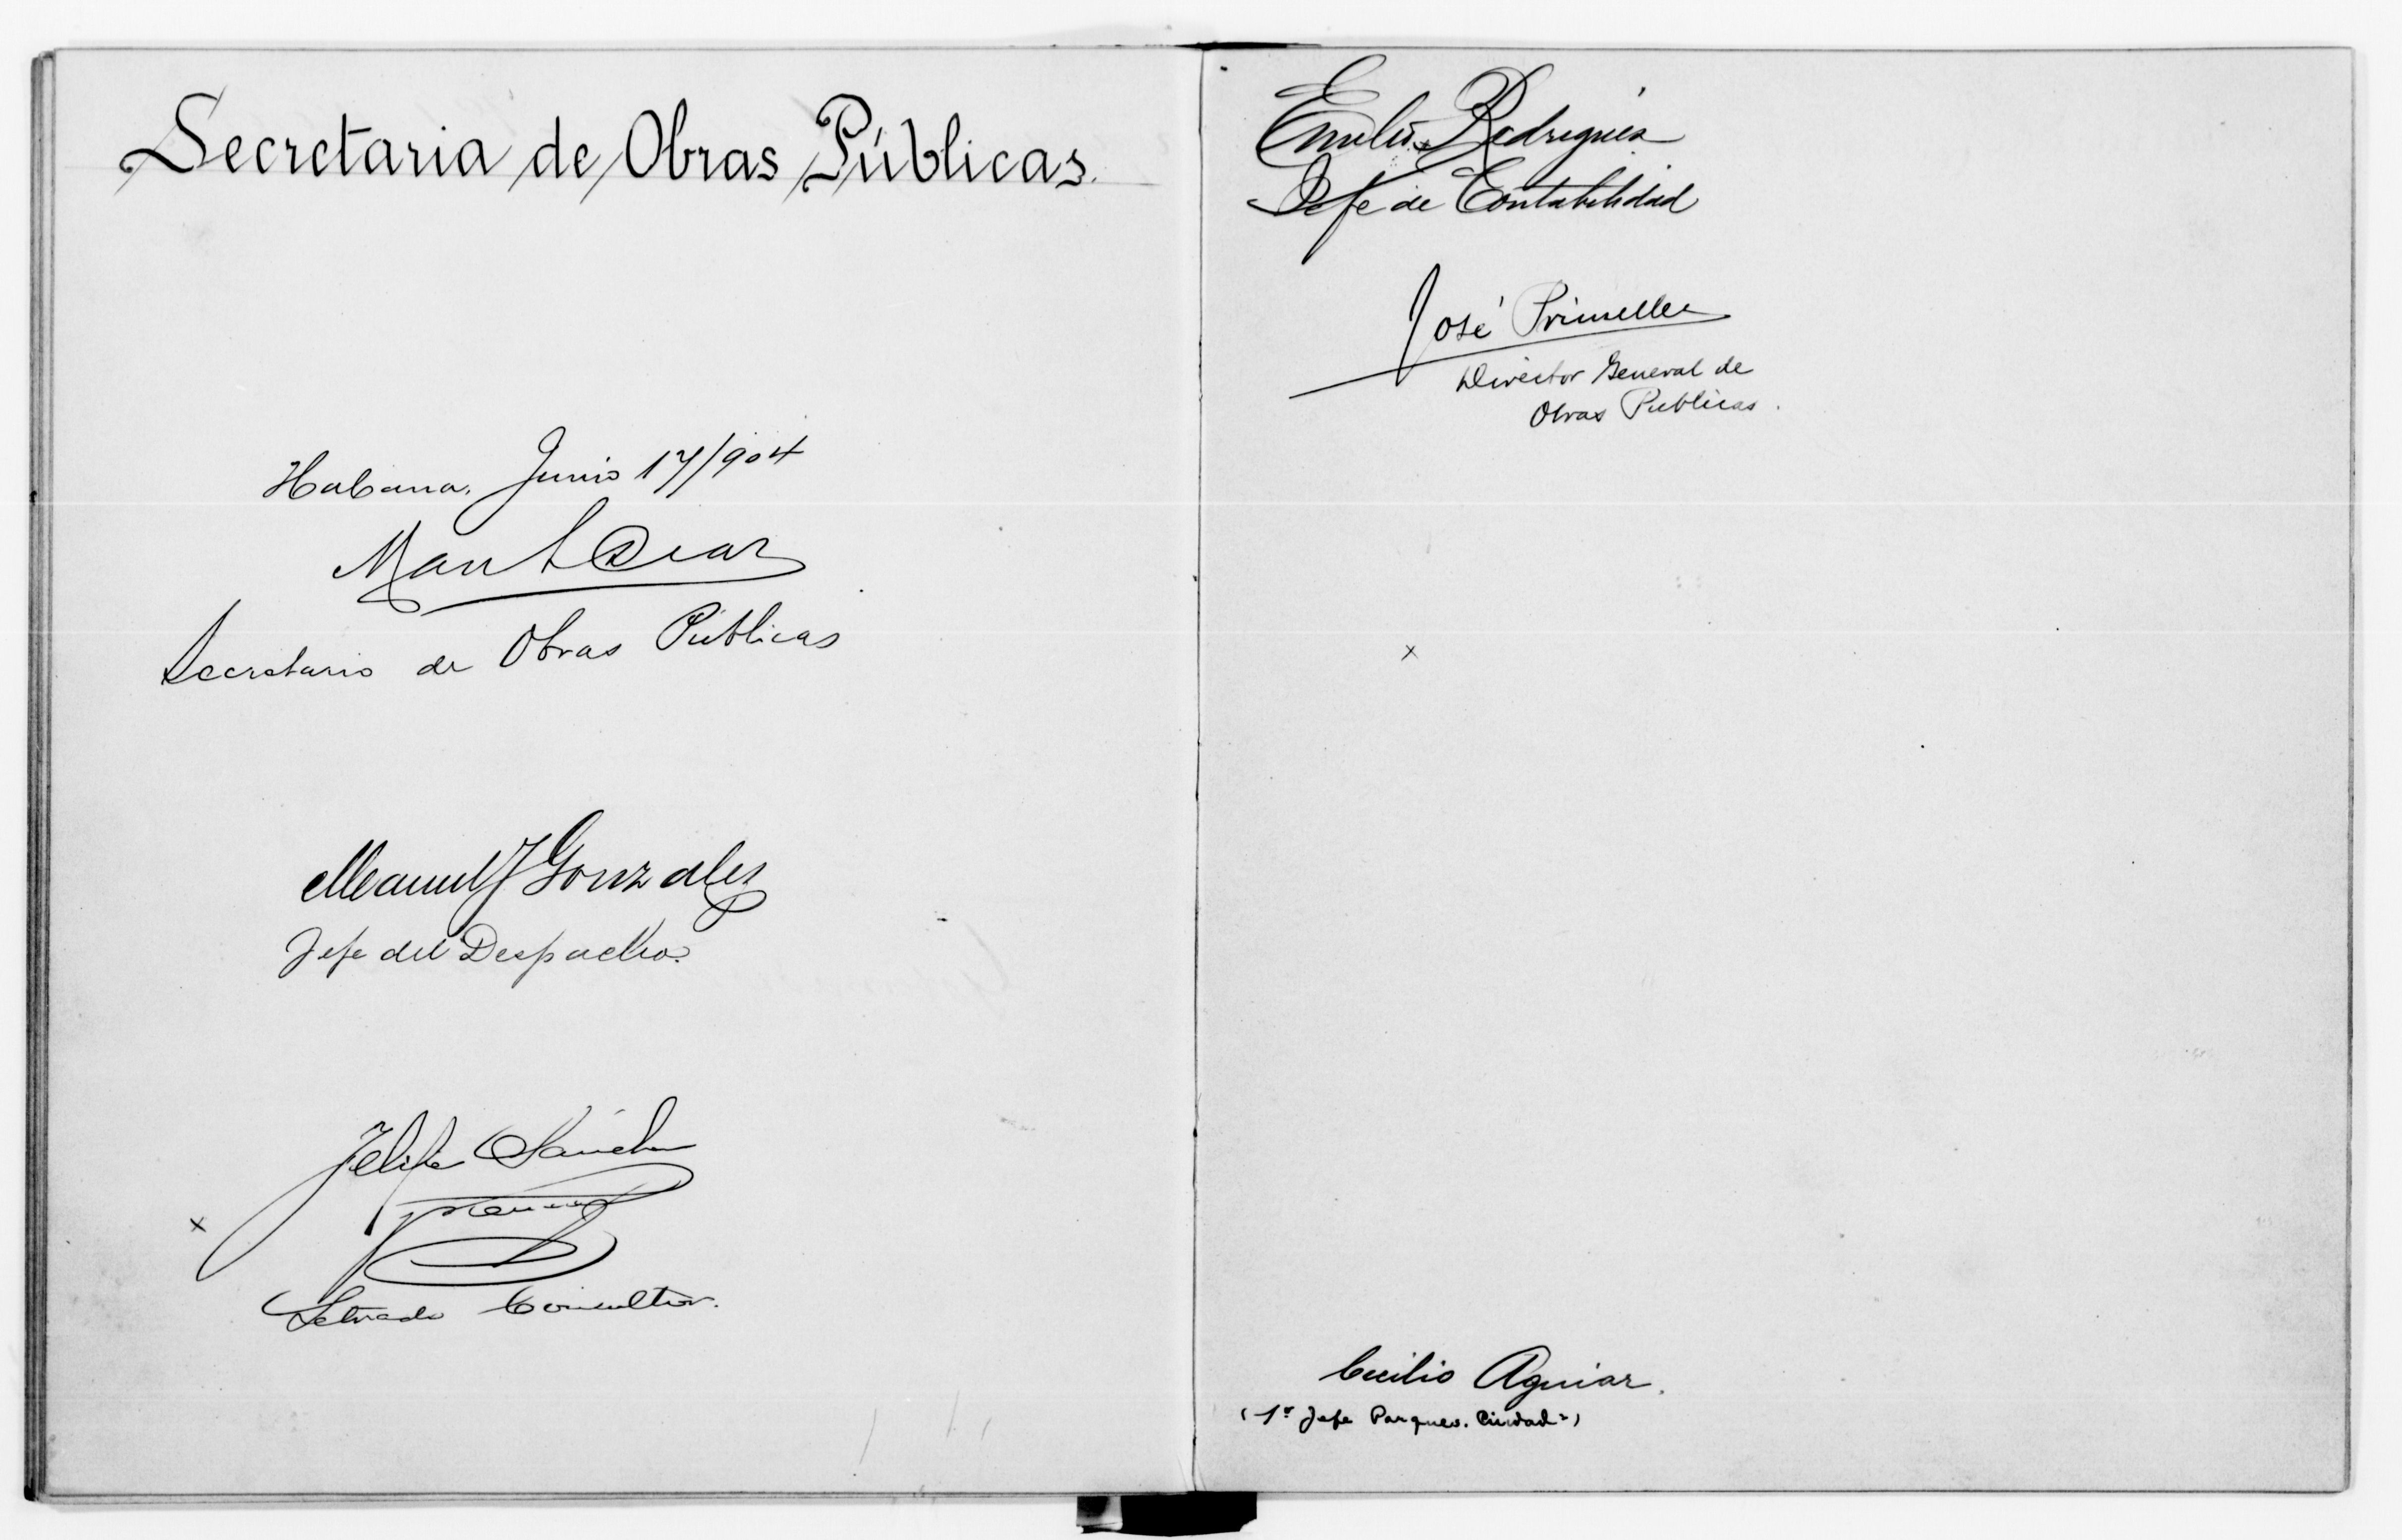 Secretaria de Obras Públicas.
Habana. Junio 17/904
Man L Diaz
Secretario de Obras Publicas
Manuel J Gonzalez
Jefe del Despacho.
Felipe Sánchez
Letrado Consultor.
Emilio Rodriguez
Jefe de Contabilidad
José Primelles
Director General de
Obras Publicas.
x
x
Cecilio Aguiar.
(1er Jefe Parques. Ciudad")